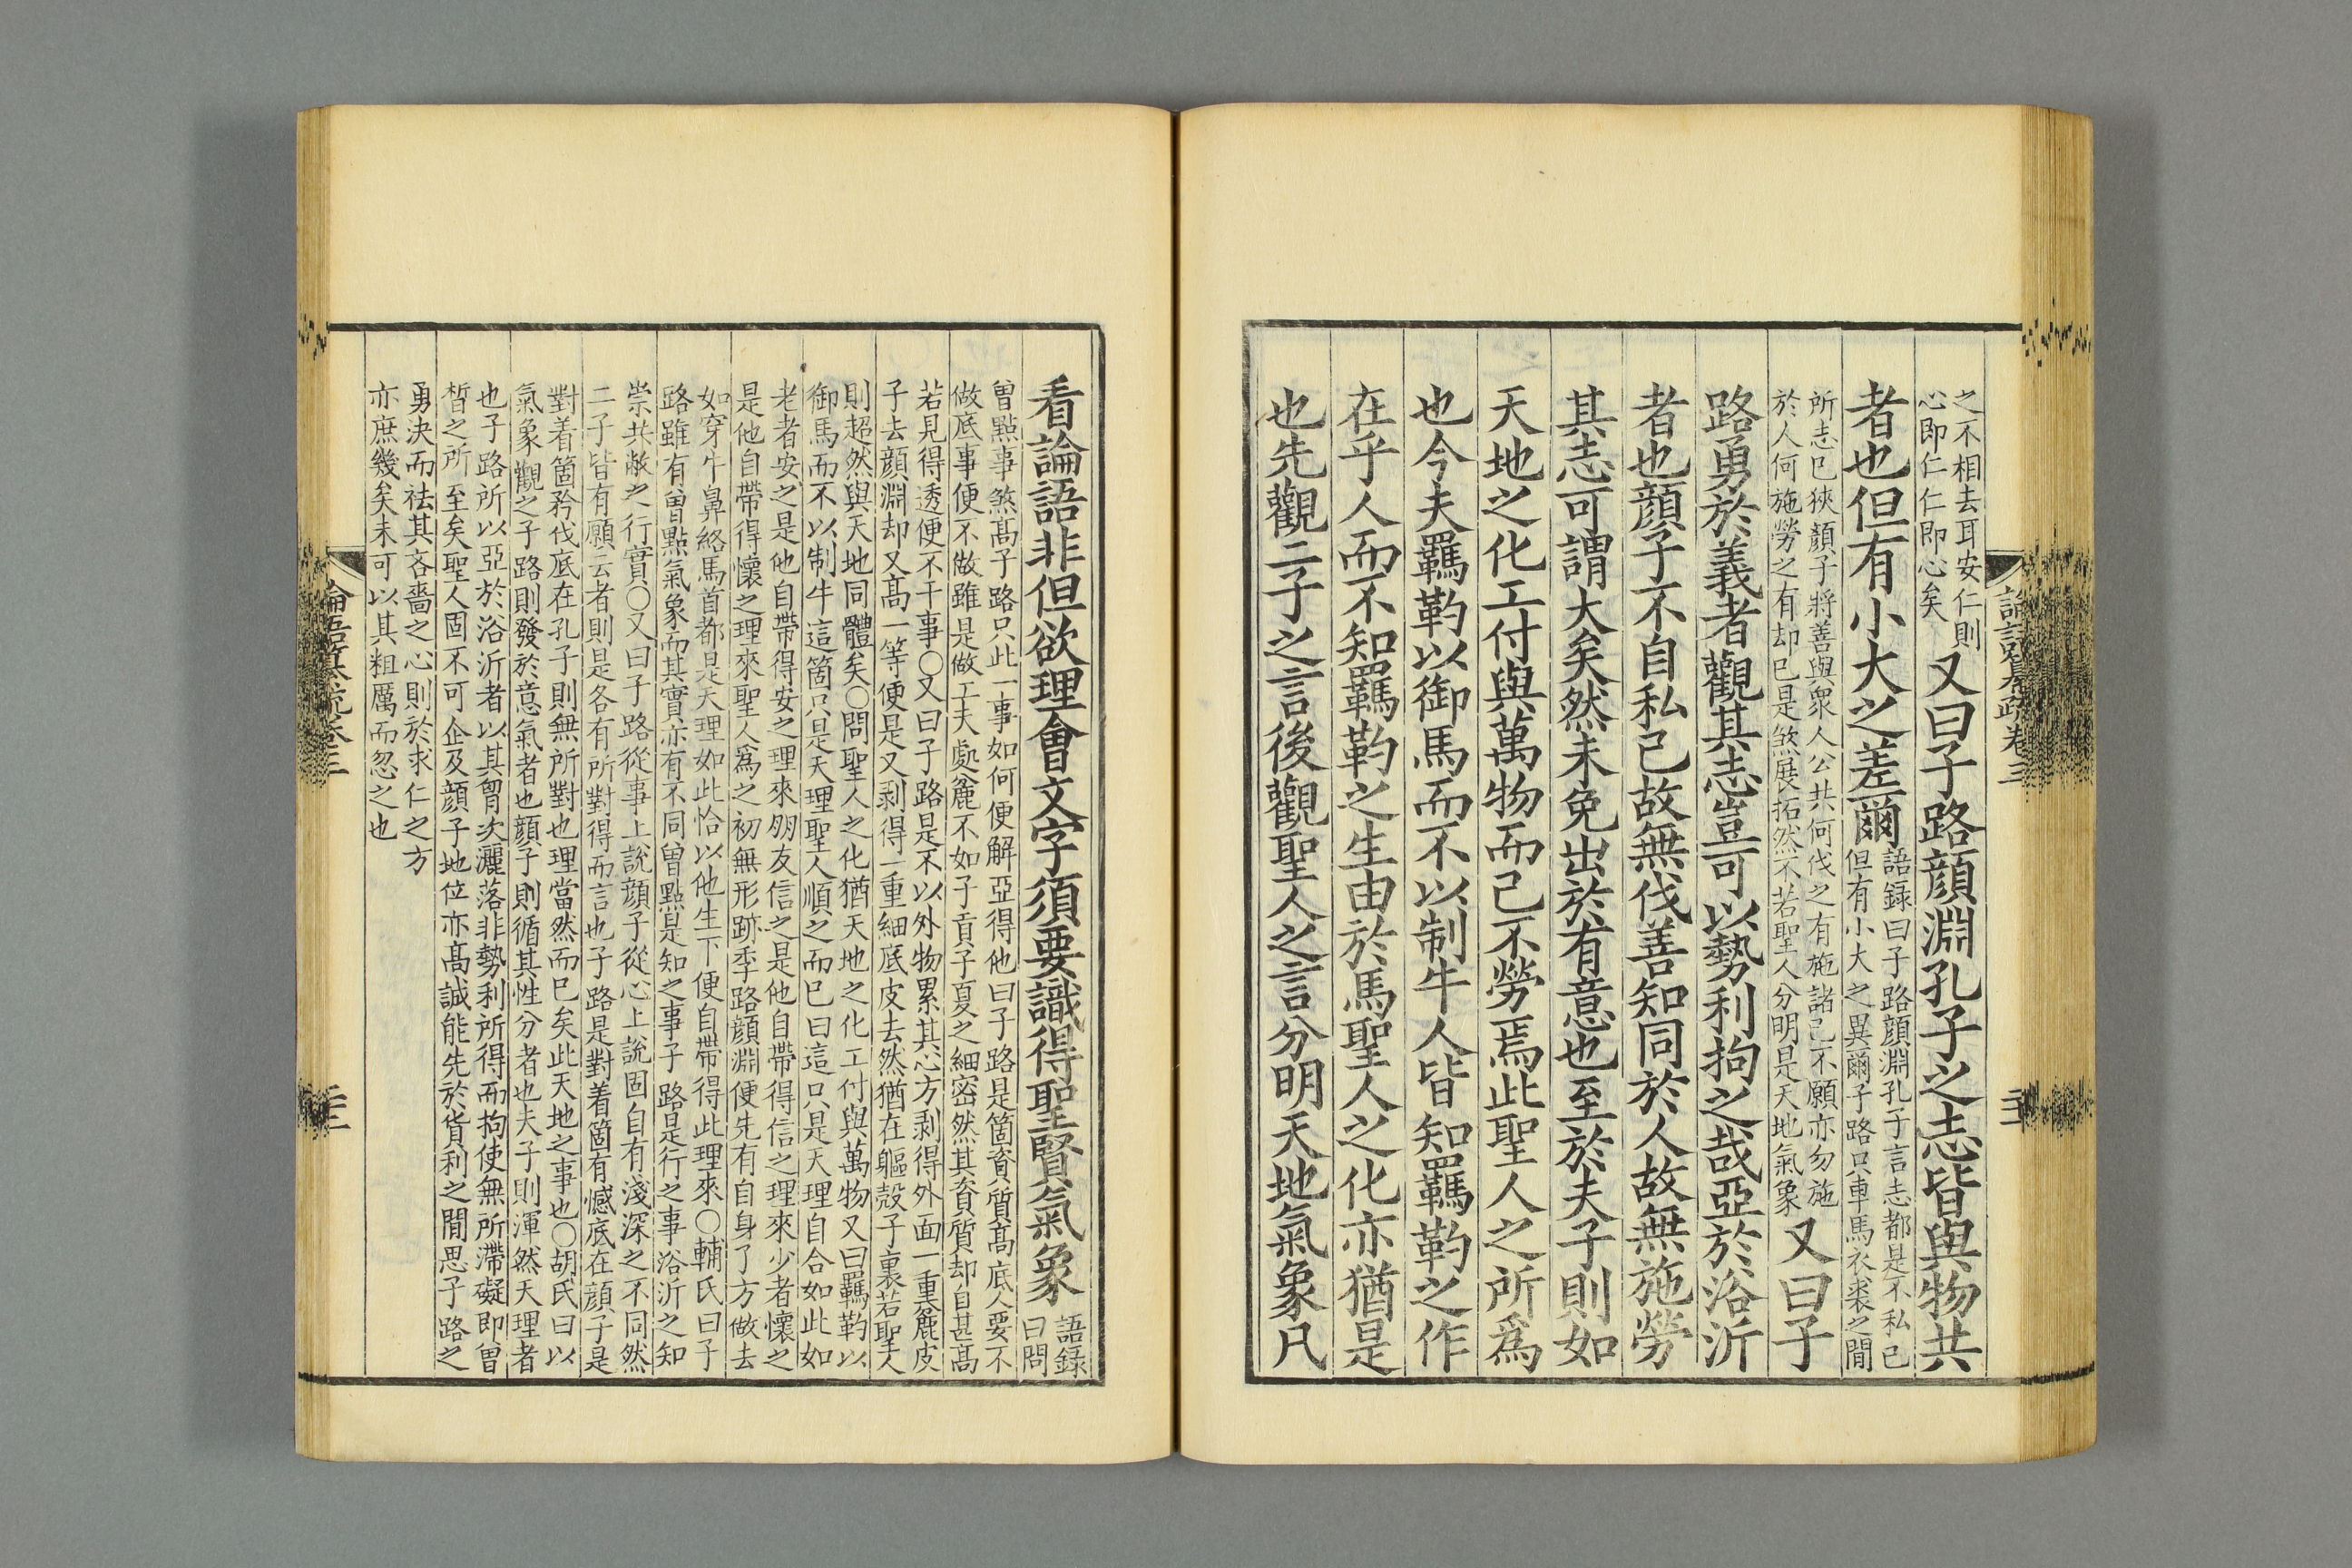 論語纂疏卷三
之不相去耳安仁則
心即仁仁即心矣
又曰子路顔淵孔子之志皆與物共
者也但有小大之差爾
語錄曰子路顔淵孔子言志都是不私己
但有小大之異爾子路只車馬衣裘之閒
所志已狹顔子將善與衆人公共何伐之有施諸己不願亦勿施
於人何施勞之有却已是煞展拓然不若聖人分明是天地氣象
又曰子
路勇於義者觀其志豈可以勢利拘之哉亞於浴沂
者也顔子不自私已故無伐善知同於人故無施勞
其志可謂大矣然未免出於有意也至於夫子則如
天地之化工付與萬物而己不勞焉此聖人之所爲
也今夫羈靮以御馬而不以制牛人皆知羈靮之作
在乎人而不知羈靮之生由於馬聖人之化亦猶是
也先觀二子之言後觀聖人之言分明天地氣象凡
看論語非但欲理會文字須要識得聖賢氣象
語錄
曰問
曾點事煞髙子路只此一事如何便解亞得他曰子路是箇資質髙底人要不
做底事便不做雖是做工夫處麄不如子貢子夏之細密然其資質却自甚髙
若見得透便不干事○又曰子路是不以外物累其心方剥得外面一重麄皮
子去顔淵却又髙一等便是又剥得一重細底皮去然猶在軀殻子裏若聖人
則超然與天地同體矣○問聖人之化猶天地之化工付與萬物又曰羈靮以
御馬而不以制牛這箇只是天理聖人順之而已曰這只是天理自合如此如
老者安之是他自帶得安之理來朋友信之是他自帶得信之理來少者懷之
是他自帶得懷之理來聖人爲之初無形跡季路顔淵便先有自身了方做去
如穿牛鼻絡馬首都是天理如此恰以他生下便自帶得此理來○輔氏曰子
路雖有曾點氣象而其實亦有不同曾點是知之事子路是行之事浴沂之知
崇共敝之行實○又曰子路從事上說顔子從心上說固自有淺深之不同然
二子皆有願云者則是各有所對得而言也子路是對着箇有憾底在顔子是
對着箇矜伐底在孔子則無所對也理當然而已矣此天地之事也○胡氏曰以
氣象觀之子路則發於意氣者也顔子則循其性分者也夫子則渾然天理者
也子路所以亞於浴沂者以其胷次灑落非勢利所得而拘使無所滯礙即曾
晳之所至矣聖人固不可企及顔子地位亦髙誠能先於貨利之閒思子路之
勇決而祛其吝嗇之心則於求仁之方
亦庶幾矣未可以其粗厲而忽之也
論語纂疏卷三